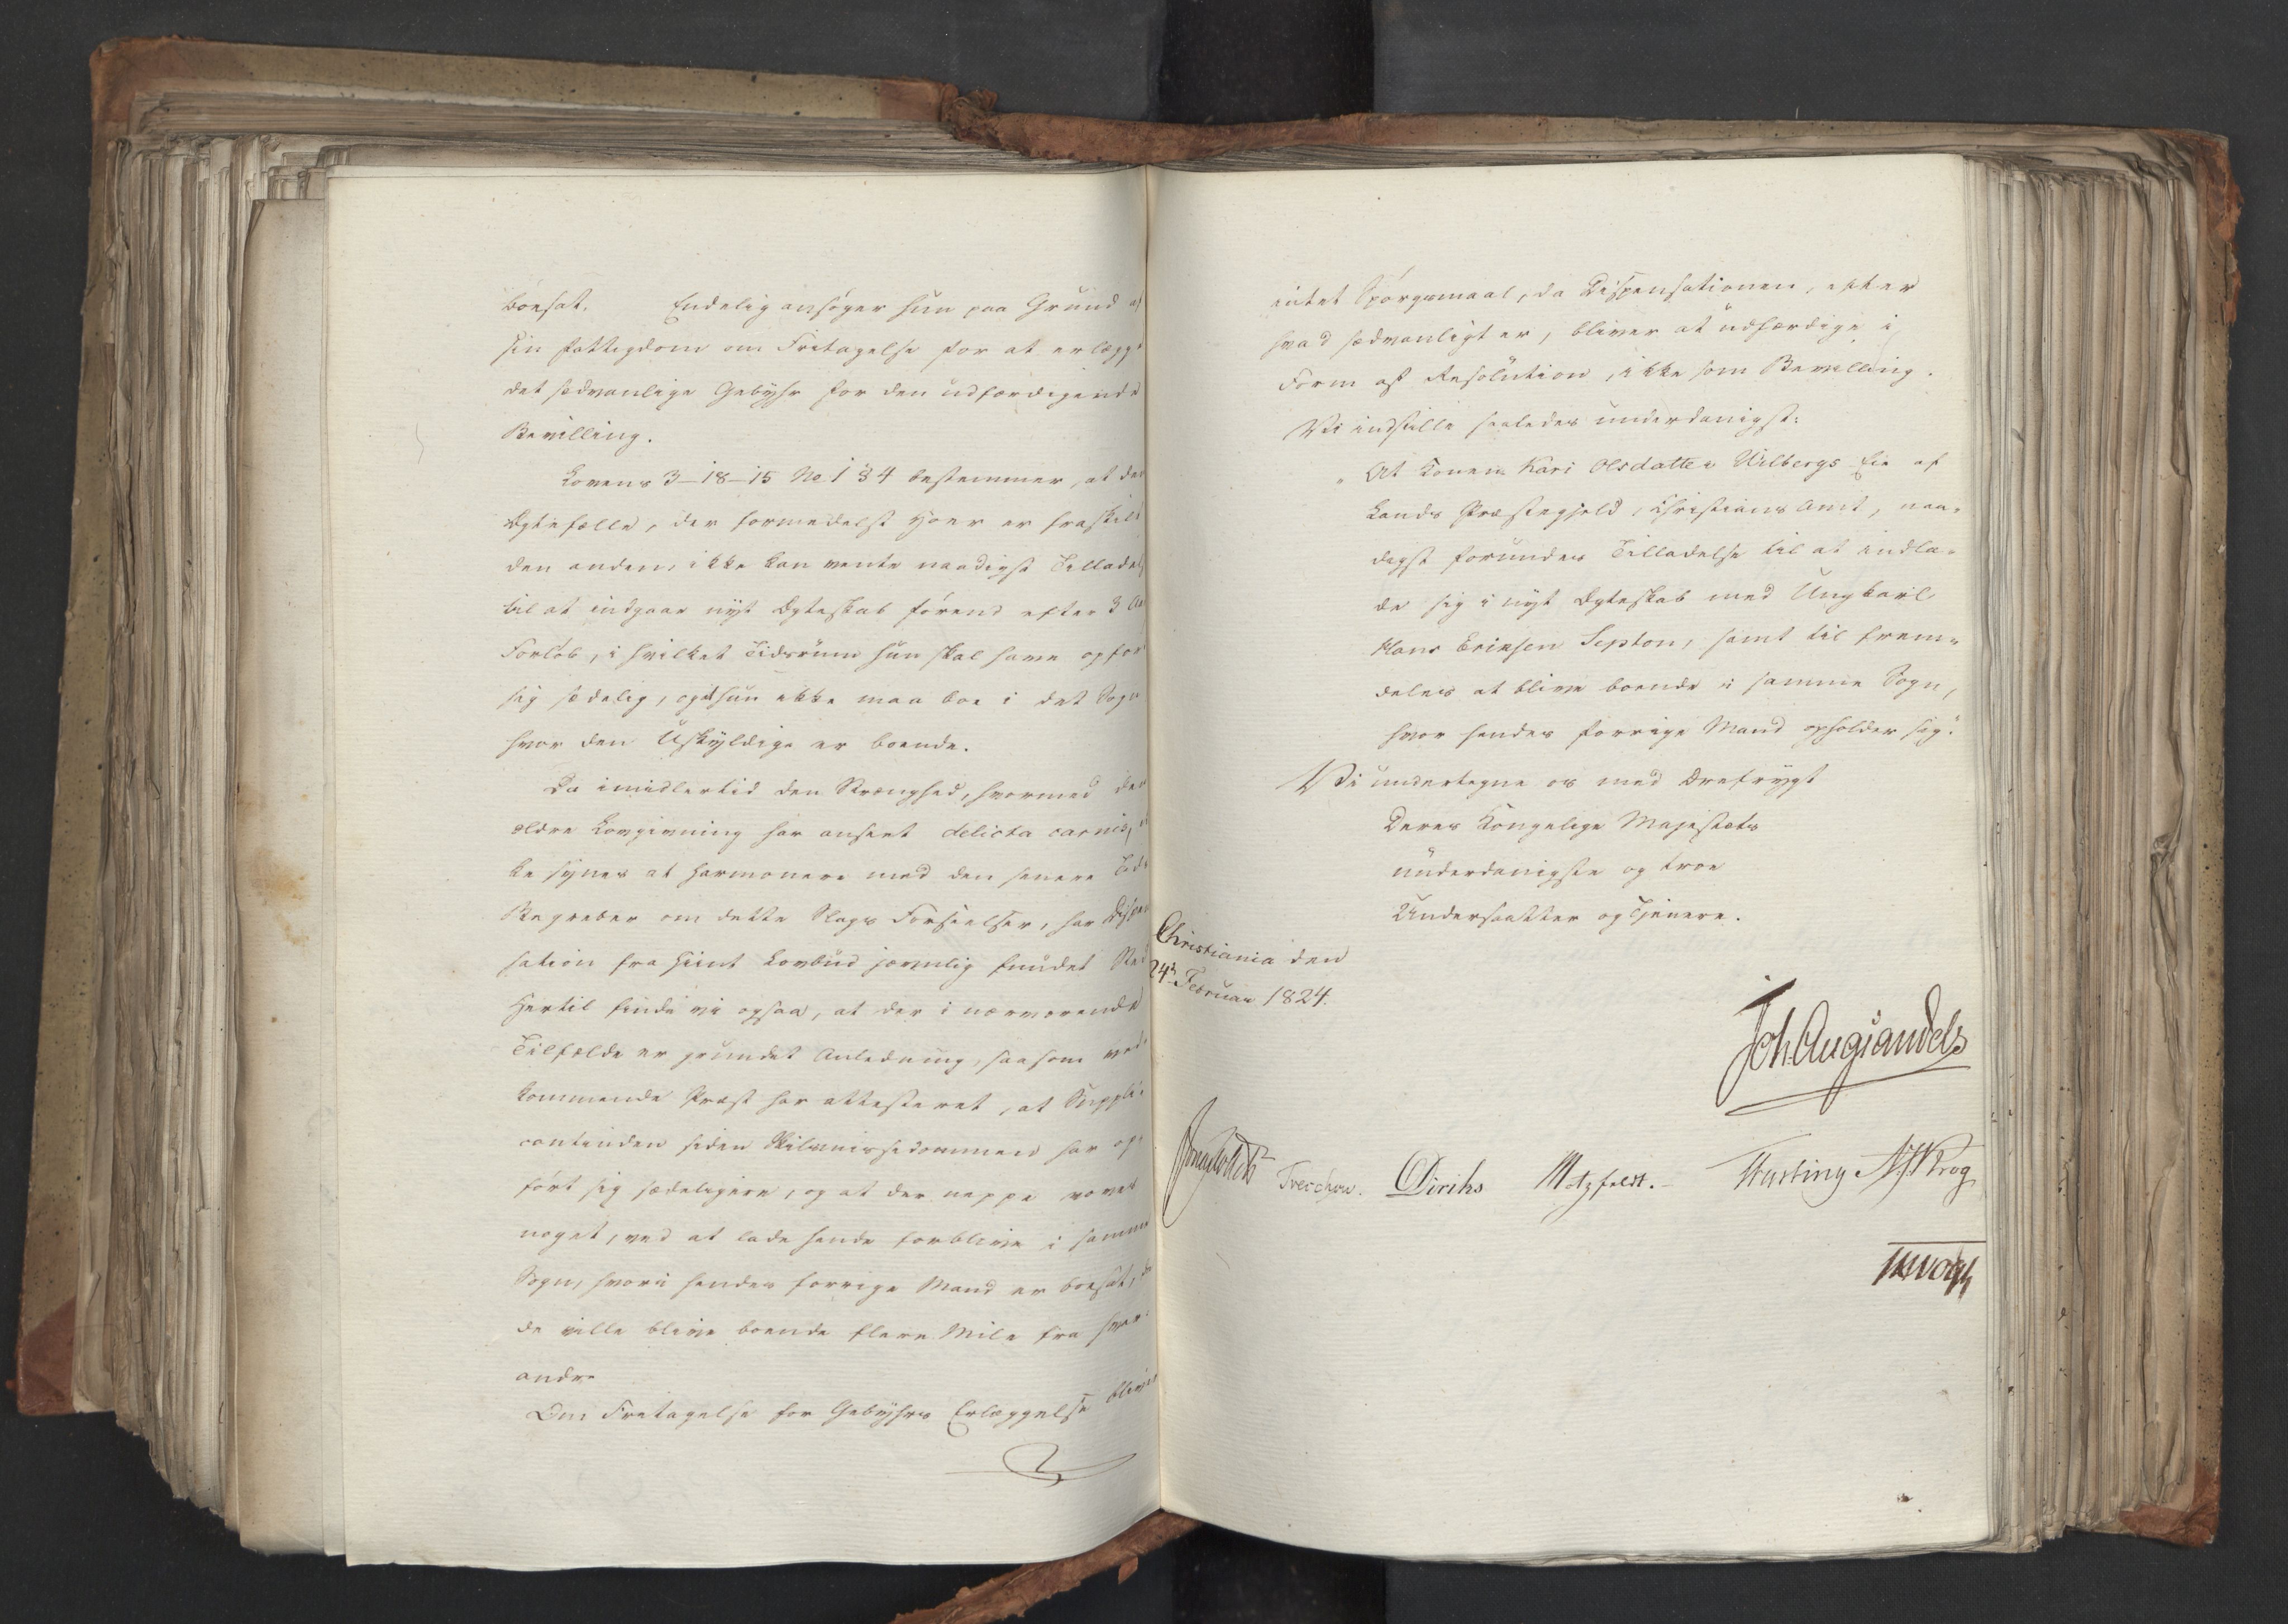 boesat. Endelig ansøger hun paa Grund af
sin Fattigdom om Fritagelse for at erlægge
det sædvanlige Gebyhr for den udfærdigende
Bevilling.
Lovens 3-18-15 No 1 § 4 bestemmer, at den
Ægtefælle, der formedelst Hoer er fraskilt
den anden, ikke kan vente naadigst Tilladelse
til at indgaae nyt Ægteskab førend efter 3 Aars
Forløb, i hvilket Tidsrum hun skal have opført
sig sædelig, og at hun ikke maa boe i det Sogn
hvor den Uskyldige er boende.
Da imidlertid den Strenghed, hvormed den
ældre Lovgivning har anseet delicta carnis, ik
ke synes at harmonere med den senere Tids
Begreber om dette Slags Forseelser, har Dispen
sation fra hiint Lovbud jævnlig fundet Sted
Hertil finde vi ogsaa, at der i nærværende
Tilfælde er grundet Anledning, saasom ved-
kommende Præst har attesteret, at Suppli-
cantinden siden Skilsmissedommen har op-
ført sig sædeligen, og at der neppe voves
noget, ved at lade hende forblive i samme
Sogn, hvori hendes forrige Mand er boesat, da
de ville blive boende flere Mile fra hver-
andre
Om Fritagelse for Gebyhrs Erlæggelse bliver
intet Spørgsmaal, da Dispensationen, efter
hvad sædvanligt er, bliver at udfærdige i
Form af Resolution, ikke som Bevilling.
Vi indstille saaledes underdanigst:
"At Konen Kari Olsdatter Wilbergs Eie af
Lands Præstegjeld, Christians Amt, naa-
digst forundes Tilladelse til at indla-
de sig i nyt Ægteskab med Ungkarl
Hans Eriksen Septon, samt til frem-
deles at blive boende i samme Sogn,
hvor hendes forrige Mand opholder sig."
Vi undertegne os med Ærefrygt
Deres Kongelige Majestæts
underdanigste og troe
Undersaatter og Tjenere.
Christiania den
24de Februar 1824.
Joh. Aug. Sandels
Sommerhielm Treschow. Diriks Motzfeldt. Fasting A Krog